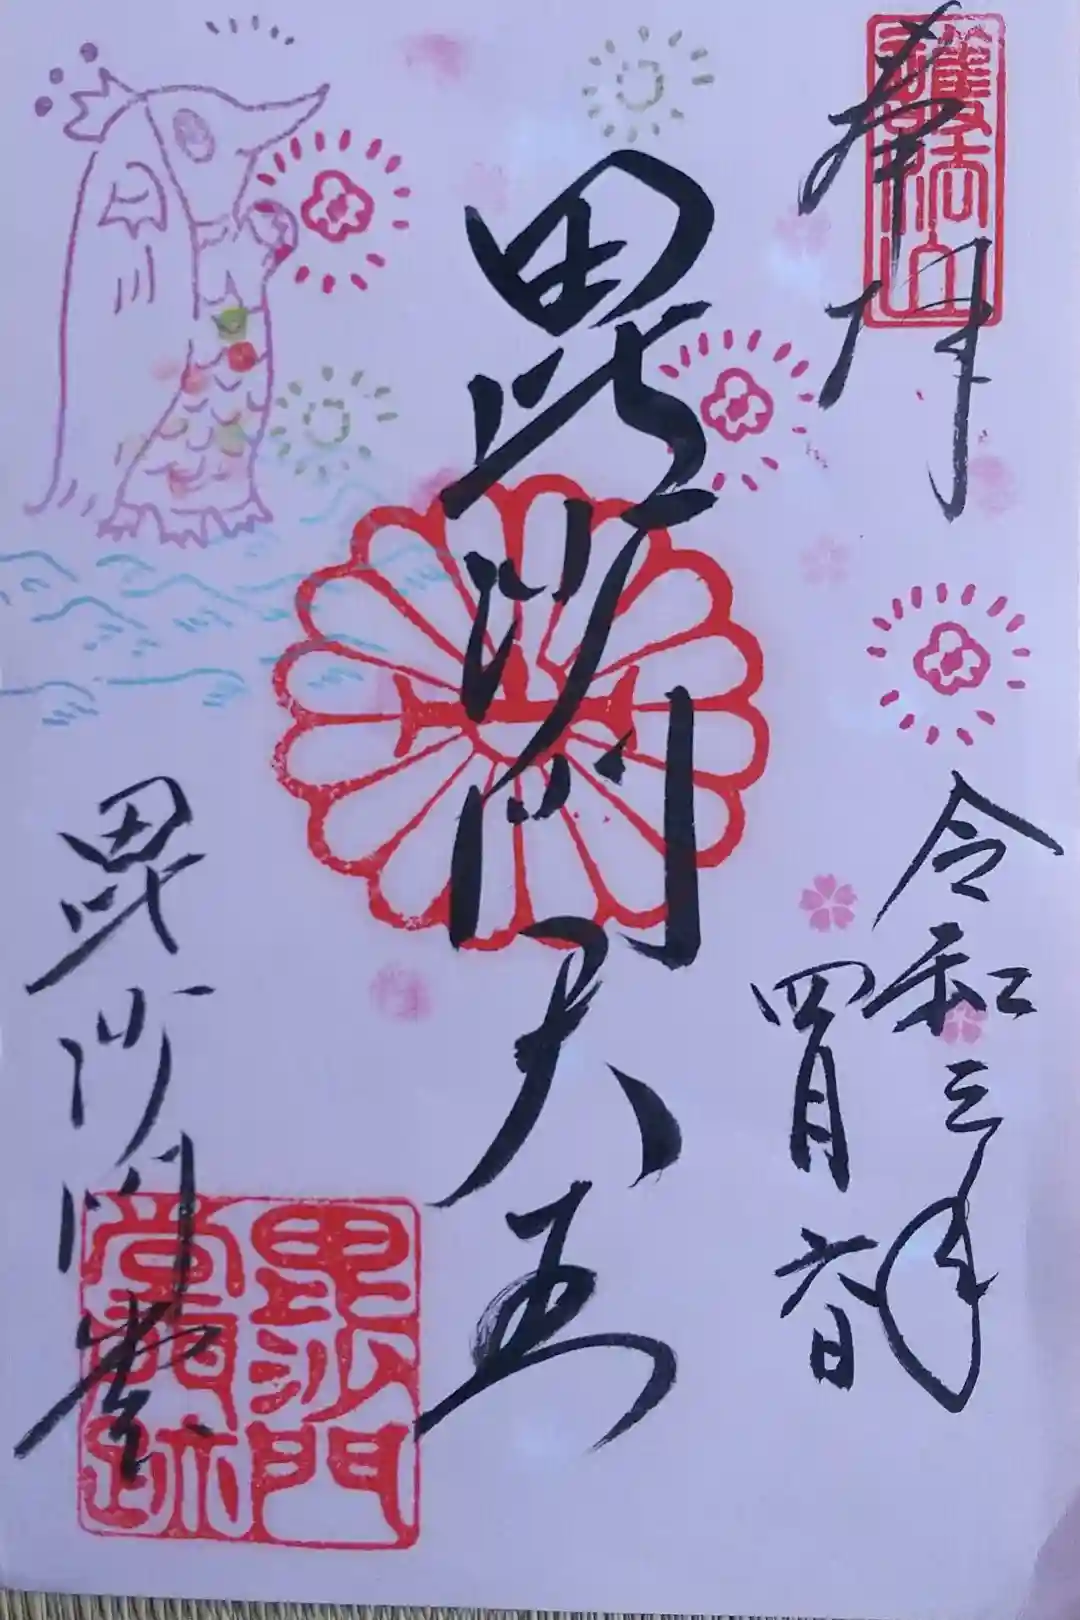 護法山
奉拝
令和三年
四月六日
毘沙門天王
毘沙門堂
毘沙門
堂門跡